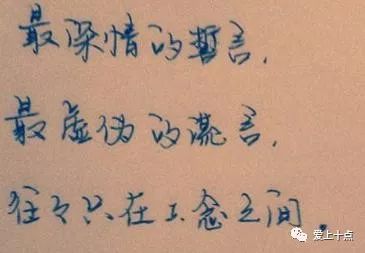 最深情的誓言,
最虚伪的谎言,
往々只在一念之间。
爱上十点